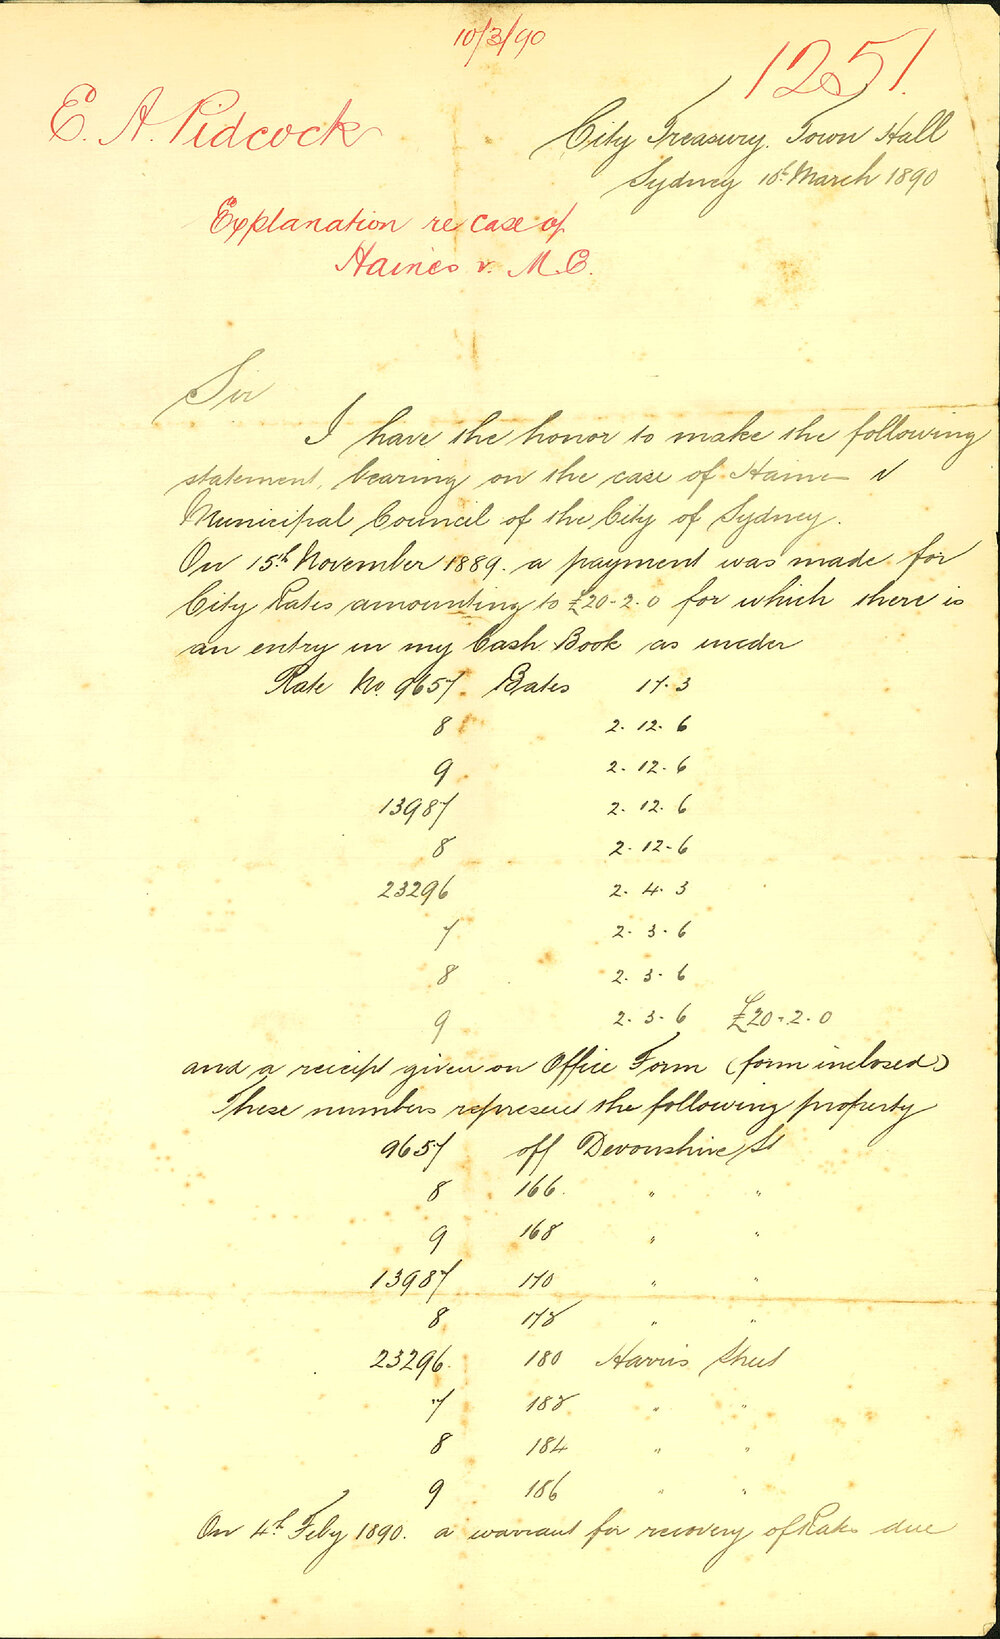 10/3/90
1251.
E. A. Pidcock
City Treasury. Town Hall
Sydney 10th March 1890
Explanation re case of
Haines v. M.C.
Sir
I have the honor to make the following
statement, bearing on the case of Haines v
Municipal Council of the City of Sydney.
On 15th November 1889. a payment was made for
City Rates amounting to £20-2-0 for which there is
an entry in my Cash Book as under
Rate No. 9657. Bates 17.3
8 2. 12. 6
9 2. 12. 6
13987 2. 12. 6
8 2. 12. 6
23296 2. 4. 3
7 2. 3. 6
8 2. 3. 6
9 2. 3. 6 £20-2.0
and a reciept given on Office Form (form inclosed)
These numbers represent the following property
9657 off Devonshire St
8 166. " "
9 168 " "
13987 170 " "
8 172 " "
23296. 180 Harris Street
7 182 " "
8 184 " "
9 186 " "
On 4th Feby 1890. a warrant for recovery of Rates due